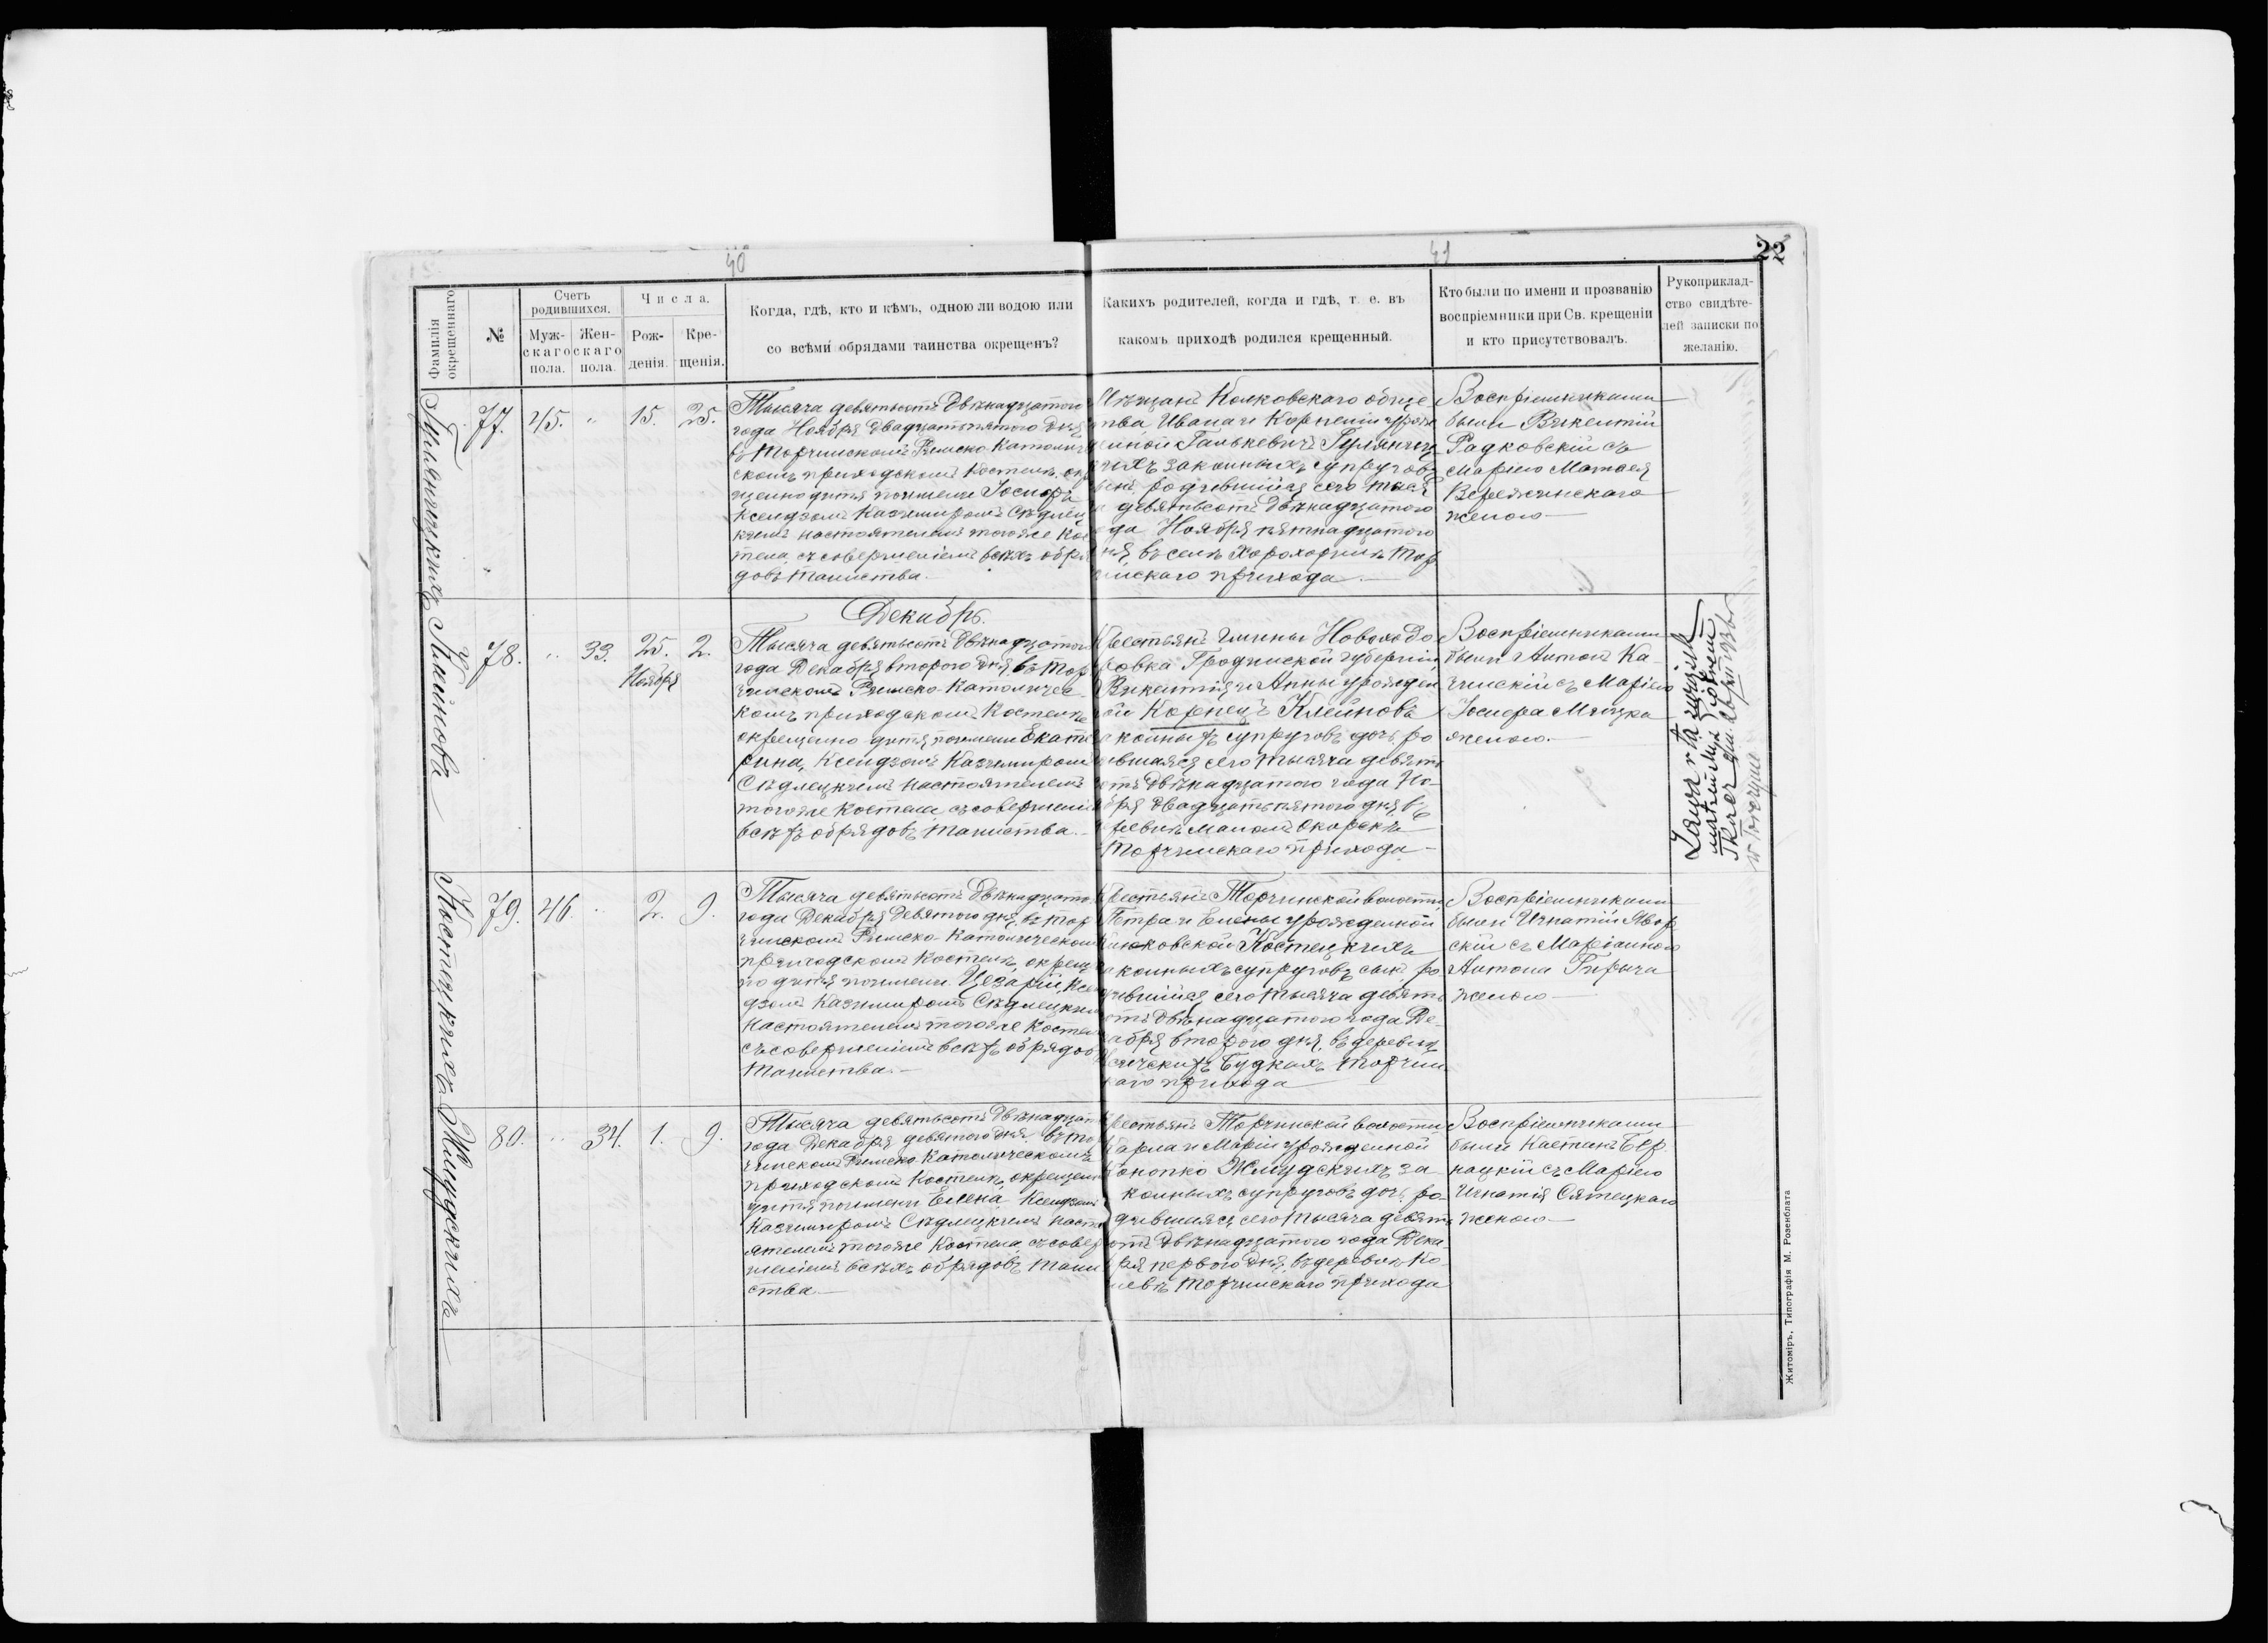 40
41
22
Фамилія окрещеннаго
№
Счетъ родившихся.
Муж-
скаго
пола.
Жен-
скаго
пола.
Числа.
Рож-
денія.
Кре-
щенія.
Когда, гдѣ, кто и кѣмъ, одною ли водою или
со всѣми обрядами таинства окрещенъ?
Какихъ родителей, когда и гдѣ, т. е. въ
какомъ приходѣ родился крещенный.
Кто были по имени и прозванію
воспріемники при Св. крещеніи
и кто присутствовалъ.
Рукоприклад-
ство свидѣте-
лей записки по
желанію.
Гуляницкихъ
77. 45. " 15. 25.
Тысяча девятьсотъ Двѣнадцатого
года Ноября двадцатьпятого дня
въ Торчинскомъ Римско-Католиче
скомъ приходскомъ Костелѣ, окр
щенно дитя по имени Іосифъ
Ксендзомъ Казимиромъ Сѣдлец
кимъ настоятелемъ тогоже Кос
тела, съ совершеніемъ всѣхъ обря
довъ Таинства.
Мѣщанъ Колковскаго обще
тва, Ивана и Корнеліи урож
нной Ганькевичъ Гуляниц
кихъ законныхъ супруговъ
сынъ, родившійся сего тысяч
а девятьсотъ Двѣнадцатого
ода Ноября пятнадцатого
ня, въ селѣ Хорохоринѣ Тор
чинскаго прихода.
Воспріемниками
были Викентій
Радковскій съ
Маріею Матвея
Вережинскаго
женою
Декабрь.
Клейнова
78. " 33. 25. 2.
Ноября
Тысяча девятьсотъ Двѣнадцатого
года Декабря второго дня, въ Тор
чинскомъ Римско-Католичес
комъ приходскомъ Костелѣ
окрещенно дитя, по имени Екате
рина, Ксендзомъ Казимиромъ
Сѣдлецкимъ настоятелемъ
тогоже Костела, съ совершені
всѣхъ обрядовъ Таинства.
Крестьянъ гмины
Гродненской губерніи,
Викентія и Анны урожден
ой Корнецъ Клейновъ
аконныхъ супруговъ дочь, ро
ившаяся сего тысяча девять
отъ Двѣнадцатого года Но-
бря двадцатьпятого дня, въ
еревнѣ Маломъ Окорскѣ
Торчинскаго прихода
Воспріемниками
были Антонъ Ка-
чинскій съ Маріею
Іосифа
женою.
Костецкихъ
79. 46. " 2. 9.
Тысяча девятьсотъ Двѣнадцато
года Декабря девятого дня, въ Тор
чинскомъ Римско-Католическомъ
приходскомъ Костелѣ, окрещен
но дитя по имени Цезарій, Ксен
дзомъ Казимиромъ Сѣдлецким
настоятелемъ тогоже Костела
съ совершеніемъ всѣхъ обрядов
Таинства.
Крестьянъ Торчинской волости,
Петра и Елены урожденной
Костецкихъ
аконныхъ супруговъ сынъ, ро
ившійся сего тысяча девять
отъ Двѣнадцатого года Де
абря второго дня, въ деревнѣ
Будкахъ Торчин
каго прихода
Воспріемниками
были Игнатій Явор
скій съ Маріанною
Антона Гирыча
женою
Жмудскихъ
80. " 34. 1. 9.
Тысяча девятьсотъ Двѣнадцат
года Декабря девятого дня, въ То
чинскомъ Римско-Католическомъ
приходскомъ Костелѣ, окрещенн
дитя, по имени Елена, Ксендзомъ
Казимиромъ Сѣдлецкимъ насто
ятелемъ тогоже Костела, съ совер
шеніемъ всѣхъ обрядовъ Таин
ства
рестьянъ Торчинской волости
Карла и Маріи урожденной
Конопко Жмудскихъ за-
конныхъ супруговъ дочь, ро-
дившаяся сего тысяча девять
отъ Двѣнадцатого года Дека
бря первого дня, въ деревнѣ
Торчинскаго прихода
Воспріемниками
были Каетанъ Бер
нацкій съ Маріею
Игнатія Сятецкаго
женою
Житомiръ, Типографія М. Розенблата